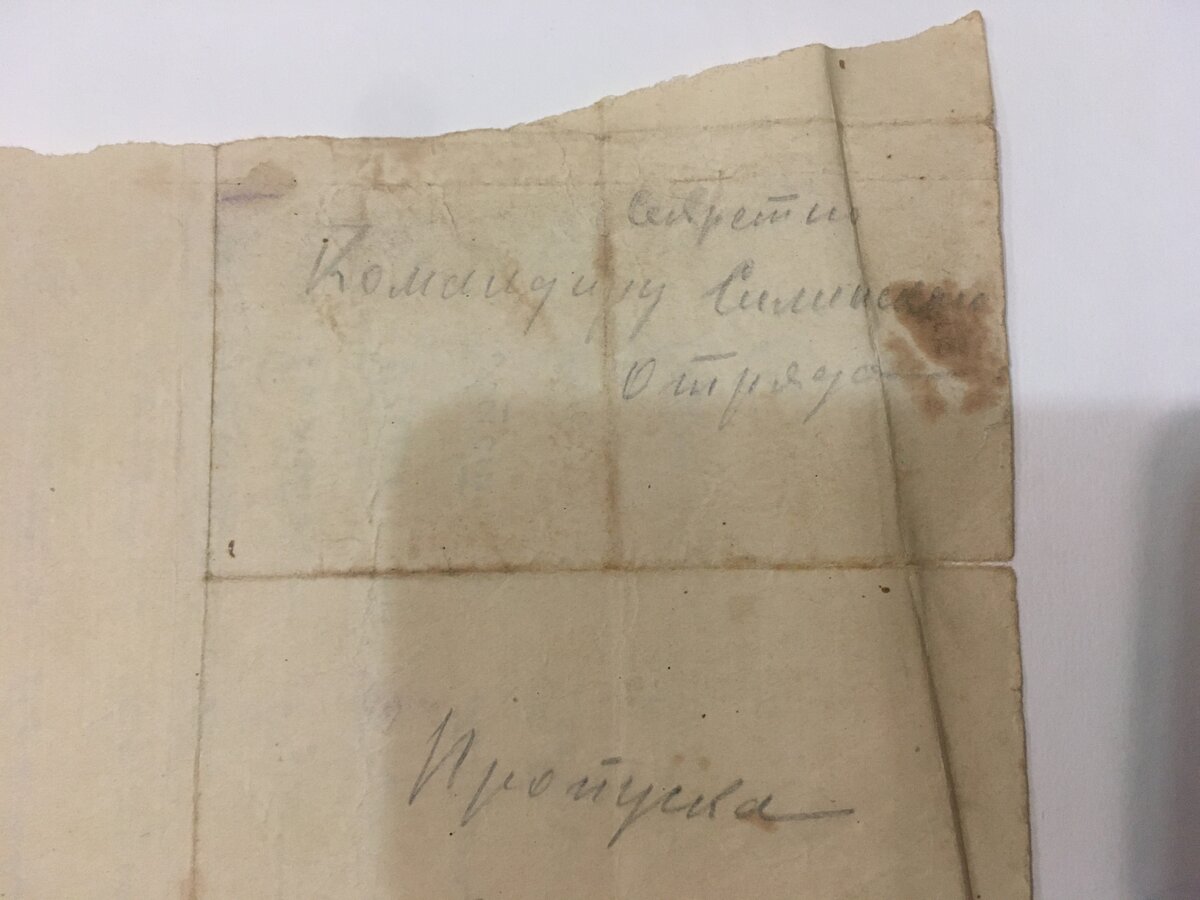 Секретно
Командиру Силинского
Отряда
Пропуска